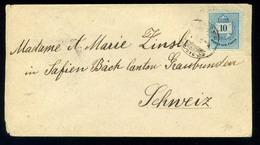 Madame A Marie Zinsli
in Safien Bäch Canton Graubünden
Schweiz
10